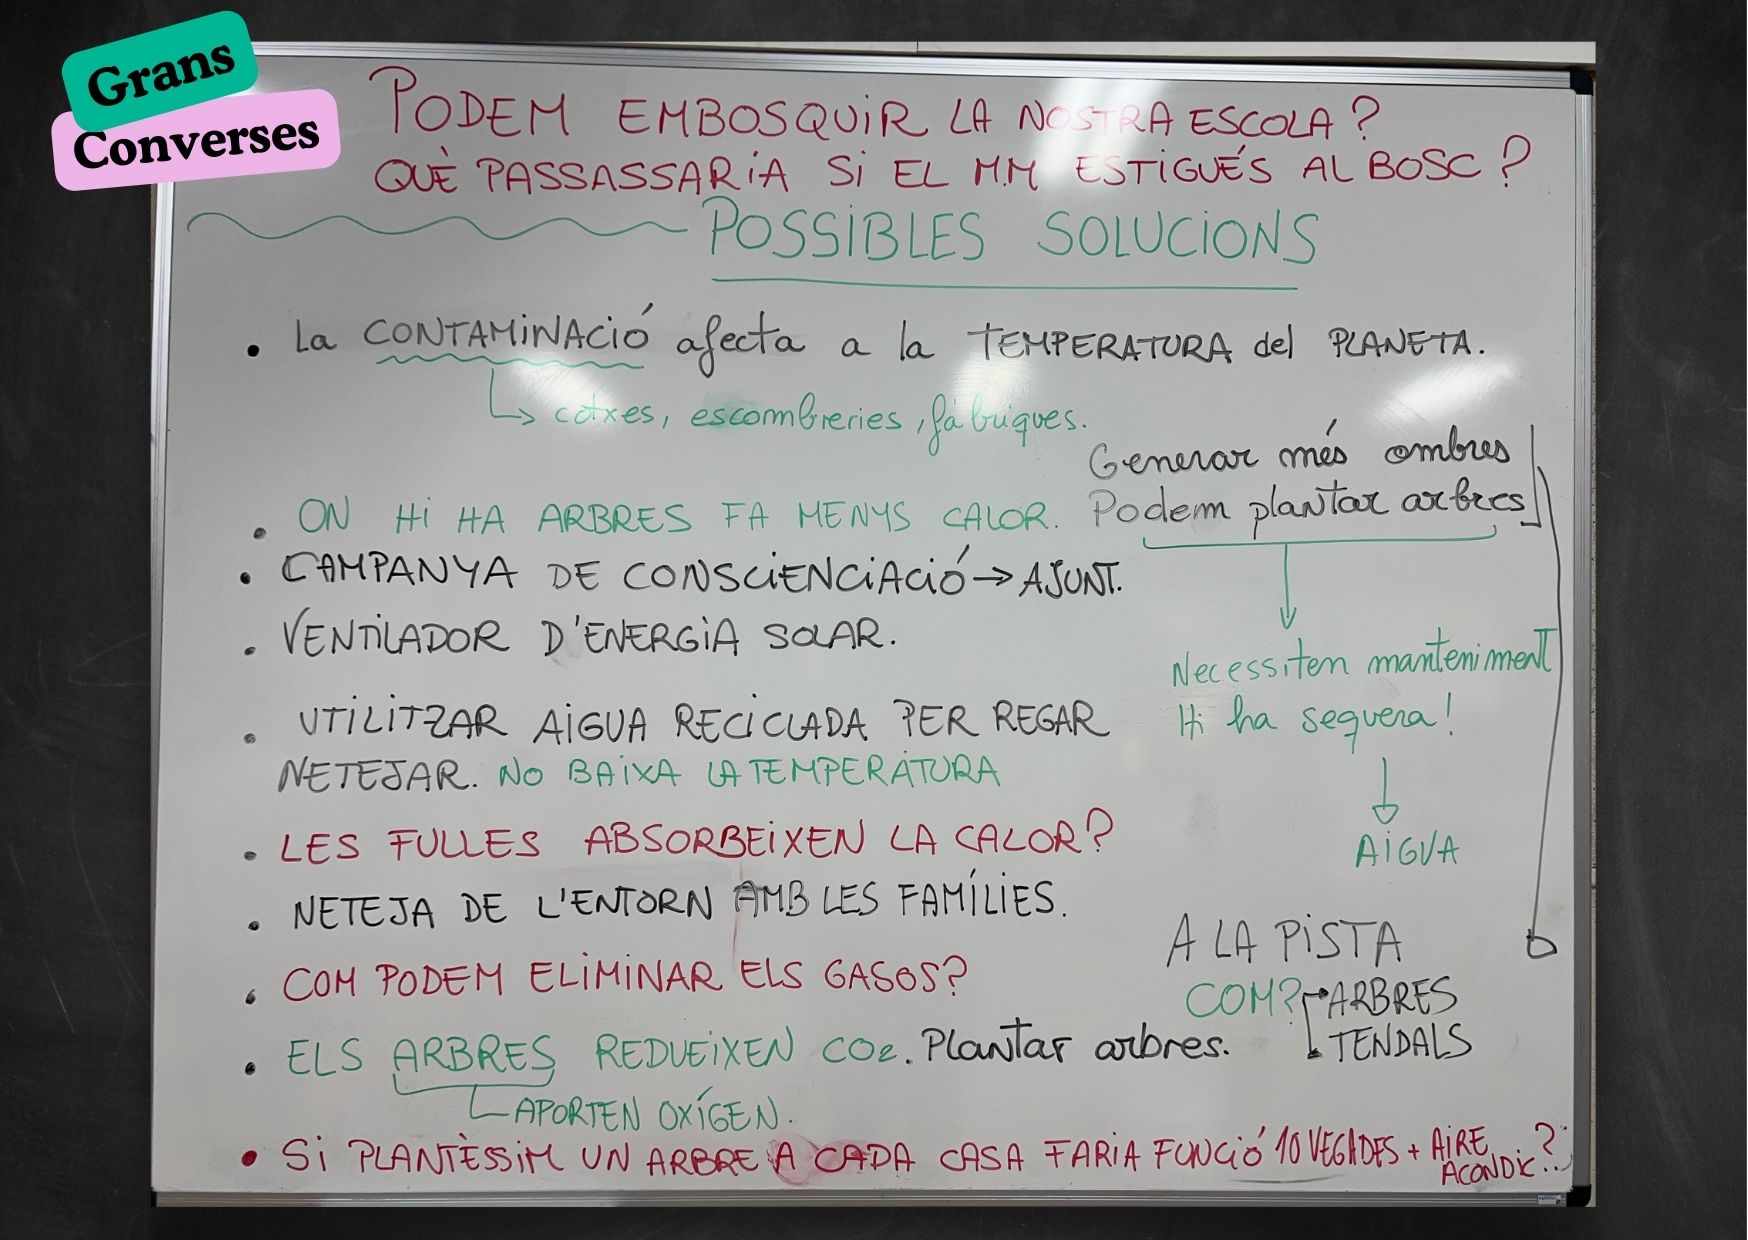 Grans
Converses
PODEM EMBOSQUIR LA NOSTRA ESCOLA?
QUÈ PASSASSARIA SI EL M.M ESTIGUÉS AL BOSC?
POSSIBLES SOLUCIONS
• La CONTAMINACIÓ afecta a la TEMPERATURA del PLANETA.
↳ cotxes, escombreries, fàbriques.
Generar més ombres
Podem plantar arbres
• ON HI HA ARBRES FA MENYS CALOR.
• CAMPANYA DE CONSCIENCIACIÓ → AJUNT.
• VENTILADOR D'ENERGIA SOLAR.
Necessiten manteniment
Hi ha sequera!
AIGUA
• UTILITZAR AIGUA RECICLADA PER REGAR
NETEJAR. NO BAIXA LA TEMPERATURA
• LES FULLES ABSORBEIXEN LA CALOR?
• NETEJA DE L'ENTORN AMB LES FAMÍLIES.
• COM PODEM ELIMINAR ELS GASOS?
A LA PISTA
COM? ARBRES
TENDALS
• ELS ARBRES REDUEIXEN CO2. Plantar arbres.
APORTEN OXÍGEN.
• SI PLANTÈSSIM UN ARBRE A CADA CASA FARIA FUNCIÓ 10 VEGADES + AIRE
ACONDIC...?